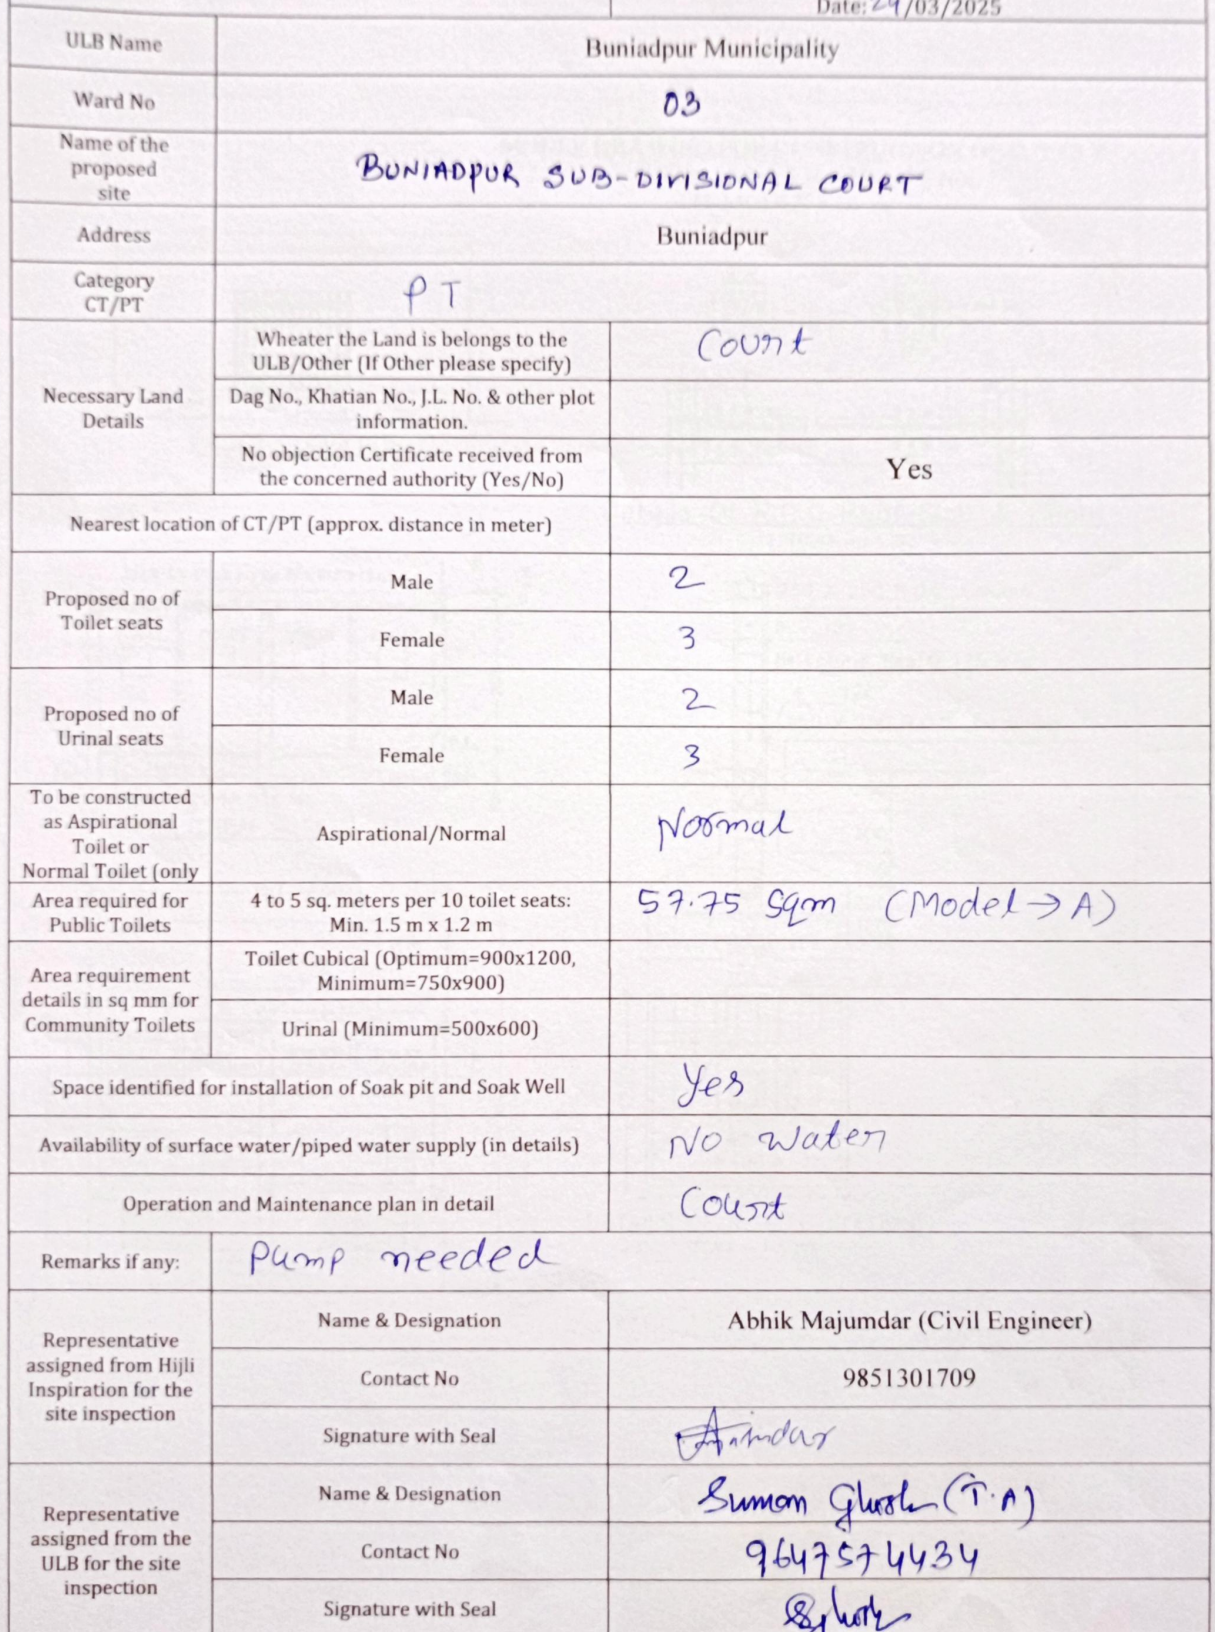 Date: 29/03/2025
ULB Name
Buniadpur Municipality
Ward No
03
Name of the
proposed
site
BUNIADPUR SUB-DIVISIONAL COURT
Address
Buniadpur
Category
CT/PT
PT
Necessary Land
Details
Wheater the Land is belongs to the
ULB/Other (If Other please specify)
Court
Dag No., Khatian No., J.L. No. & other plot
information.
No objection Certificate received from
the concerned authority (Yes/No)
Yes
Nearest location of CT/PT (approx. distance in meter)
Proposed no of
Toilet seats
Male
2
Female
3
Proposed no of
Urinal seats
Male
2
Female
3
To be constructed
as Aspirational
Toilet or
Normal Toilet (only
Aspirational/Normal
Normal
Area required for
Public Toilets
4 to 5 sq. meters per 10 toilet seats:
Min. 1.5 m x 1.2 m
57.75 Sqm (Model→A)
Area requirement
details in sq mm for
Community Toilets
Toilet Cubical (Optimum=900x1200,
Minimum=750x900)
Urinal (Minimum=500x600)
Space identified for installation of Soak pit and Soak Well
Yes
Availability of surface water/piped water supply (in details)
No water
Operation and Maintenance plan in detail
Court
Remarks if any:
Pump needed
Representative
assigned from Hijli
Inspiration for the
site inspection
Name & Designation
Abhik Majumdar (Civil Engineer)
Contact No
9851301709
Signature with Seal
Representative
assigned from the
ULB for the site
inspection
Name & Designation
Suman Ghosh (T.A)
Contact No
9647574434
Signature with Seal